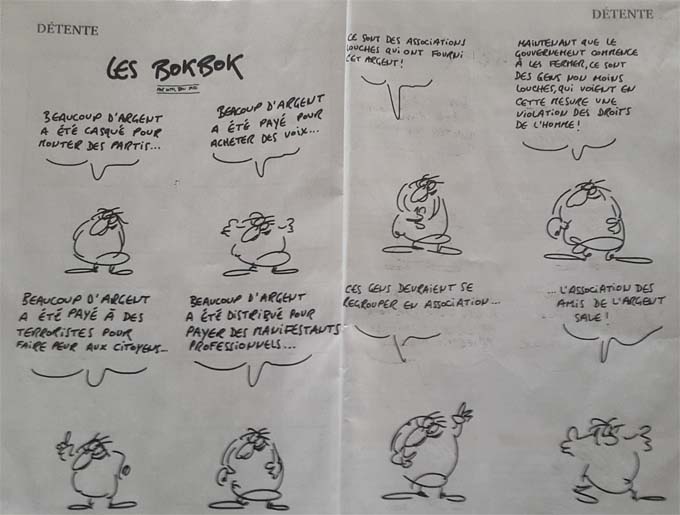 DÉTENTE
LES BOKBOK
BEAUCOUP D'ARGENT
A ÉTÉ CASQUÉ POUR
MONTER DES PARTIS...
BEAUCOUP D'ARGENT
A ÉTÉ PAYÉ POUR
ACHETER DES VOIX...
BEAUCOUP D'ARGENT
A ÉTÉ PAYÉ À DES
TERRORISTES POUR
FAIRE PEUR AUX CITOYENS...
BEAUCOUP D'ARGENT
A ÉTÉ DISTRIBUÉ POUR
PAYER DES MANIFESTANTS
PROFESSIONNELS...
DÉTENTE
CE SONT DES ASSOCIATIONS
LOUCHES QUI ONT FOURNI
CET ARGENT!
MAINTENANT QUE LE
GOUVERNEMENT COMMENCE
À LES FERMER, CE SONT
DES GENS NON MOINS
LOUCHES, QUI VOIENT EN
CETTE MESURE UNE
VIOLATION DES DROITS
DE L'HOMME!
CES GENS DEVRAIENT SE
REGROUPER EN ASSOCIATION...
...L'ASSOCIATION DES
AMIS DE L'ARGENT
SALE!